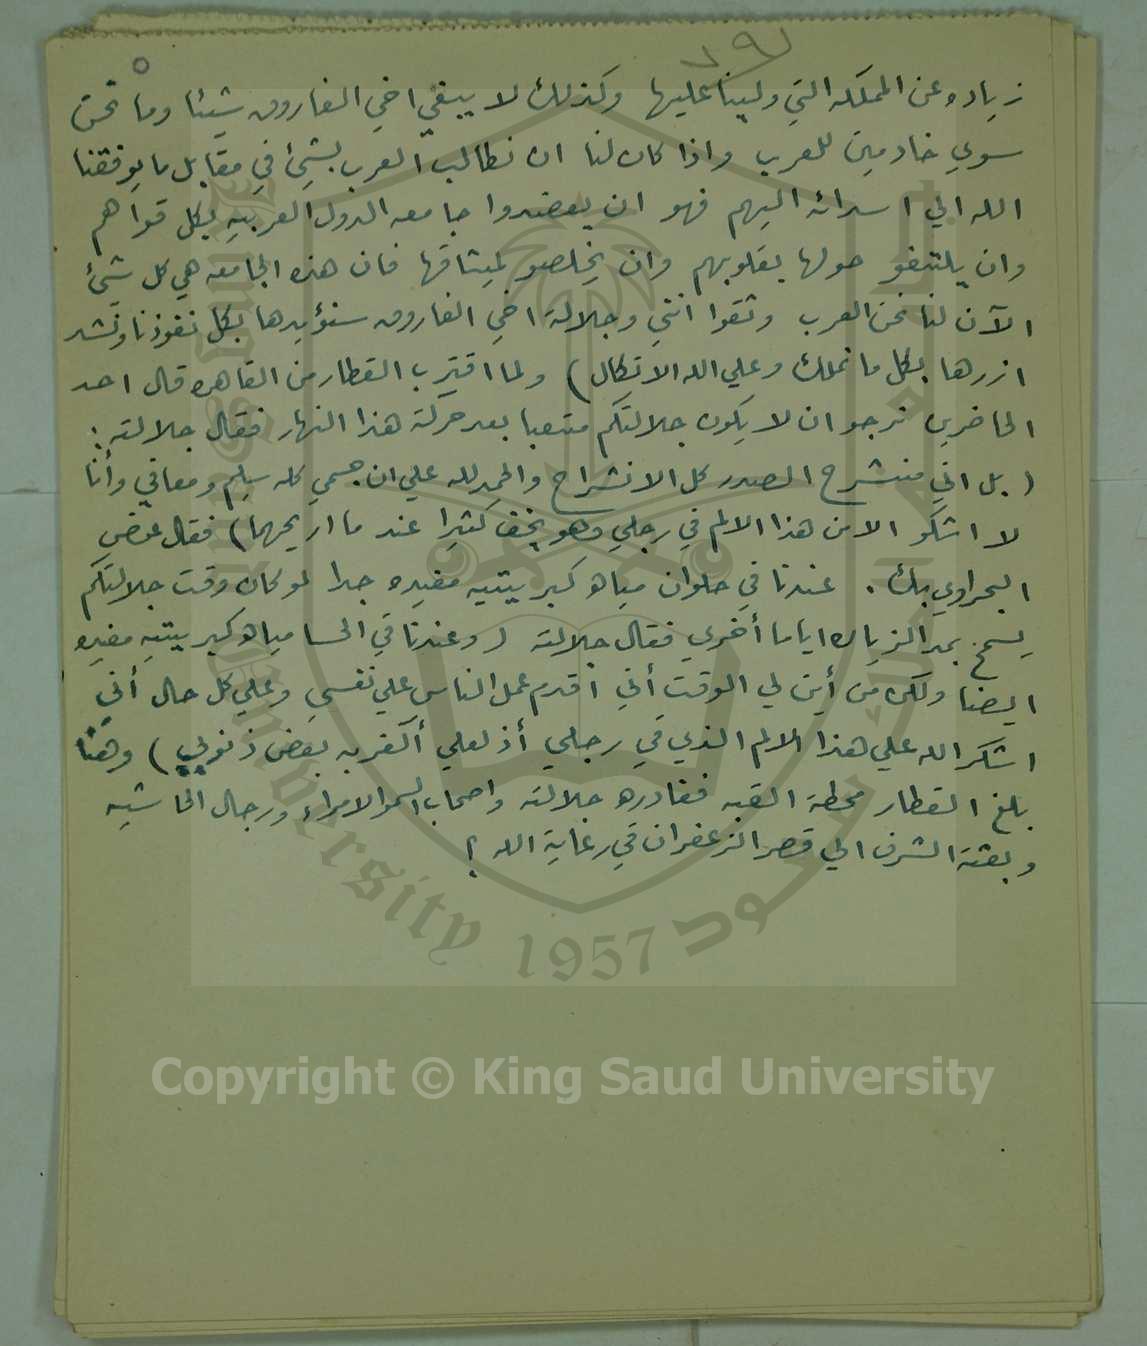 زياده عن المملكه التي ولينا عليها وكذلك لا يبغي اخي الفاروق شيئا وما نحن
سوي خادمين للعرب واذا كان لنا ان نطالب العرب بشئ في مقابل ما يوفقنا
الله الي اسدائه اليهم فهو ان يعضدوا جامعه الدول العربيه بكل قواهم
وان يلتفو حولها بقلوبهم وان يخلصو لميثاقها فان هذه الجامعه هي كل شئ
الآن لنا نحن العرب وثقوا انني وجلالة اخي الفاروق سنؤيدها بكل نفوذنا ونشد
ازرها بكل ما نملك وعلي الله الاتكال) ولما اقترب القطار من القاهره قال احد
الحاضرين نرجو ان لا يكون جلالتكم متعبا بعد حركة هذا النهار فقال جلالته:
(بل اني منشرح الصدر كل الانشراح والحمد لله علي ان جسمي كله سليم ومعافي وأنا
لا اشكو الا من هذا الالم في رجلي وهو يخف كثيرا عند ما اريحهما) فقال عوض
البحراوي بك. عندنا في حلوان مياه كبريتيه مفيده جدا لو كان وقت جلالتكم
يسمح بمد الزياره اياما أخري فقال جلالته (وعندنا في الحسا مياه كبريتيه مفيده
ايضا ولكن من أين لي الوقت أني اقدم عمل الناس علي نفسي وعلي كل حال أني
اشكر الله علي هذا الالم الذي في رجلي أذ لعلي أكفر به بعض ذنوبي) وهنا
بلغ القطار محطة القبه فغادره جلالته واصحاب السمو الامراء ورجال الحاشيه
وبعثة الشرف الي قصر الزعفران في رعاية الله؟
Copyright © King Saud University
King Saud University 1957